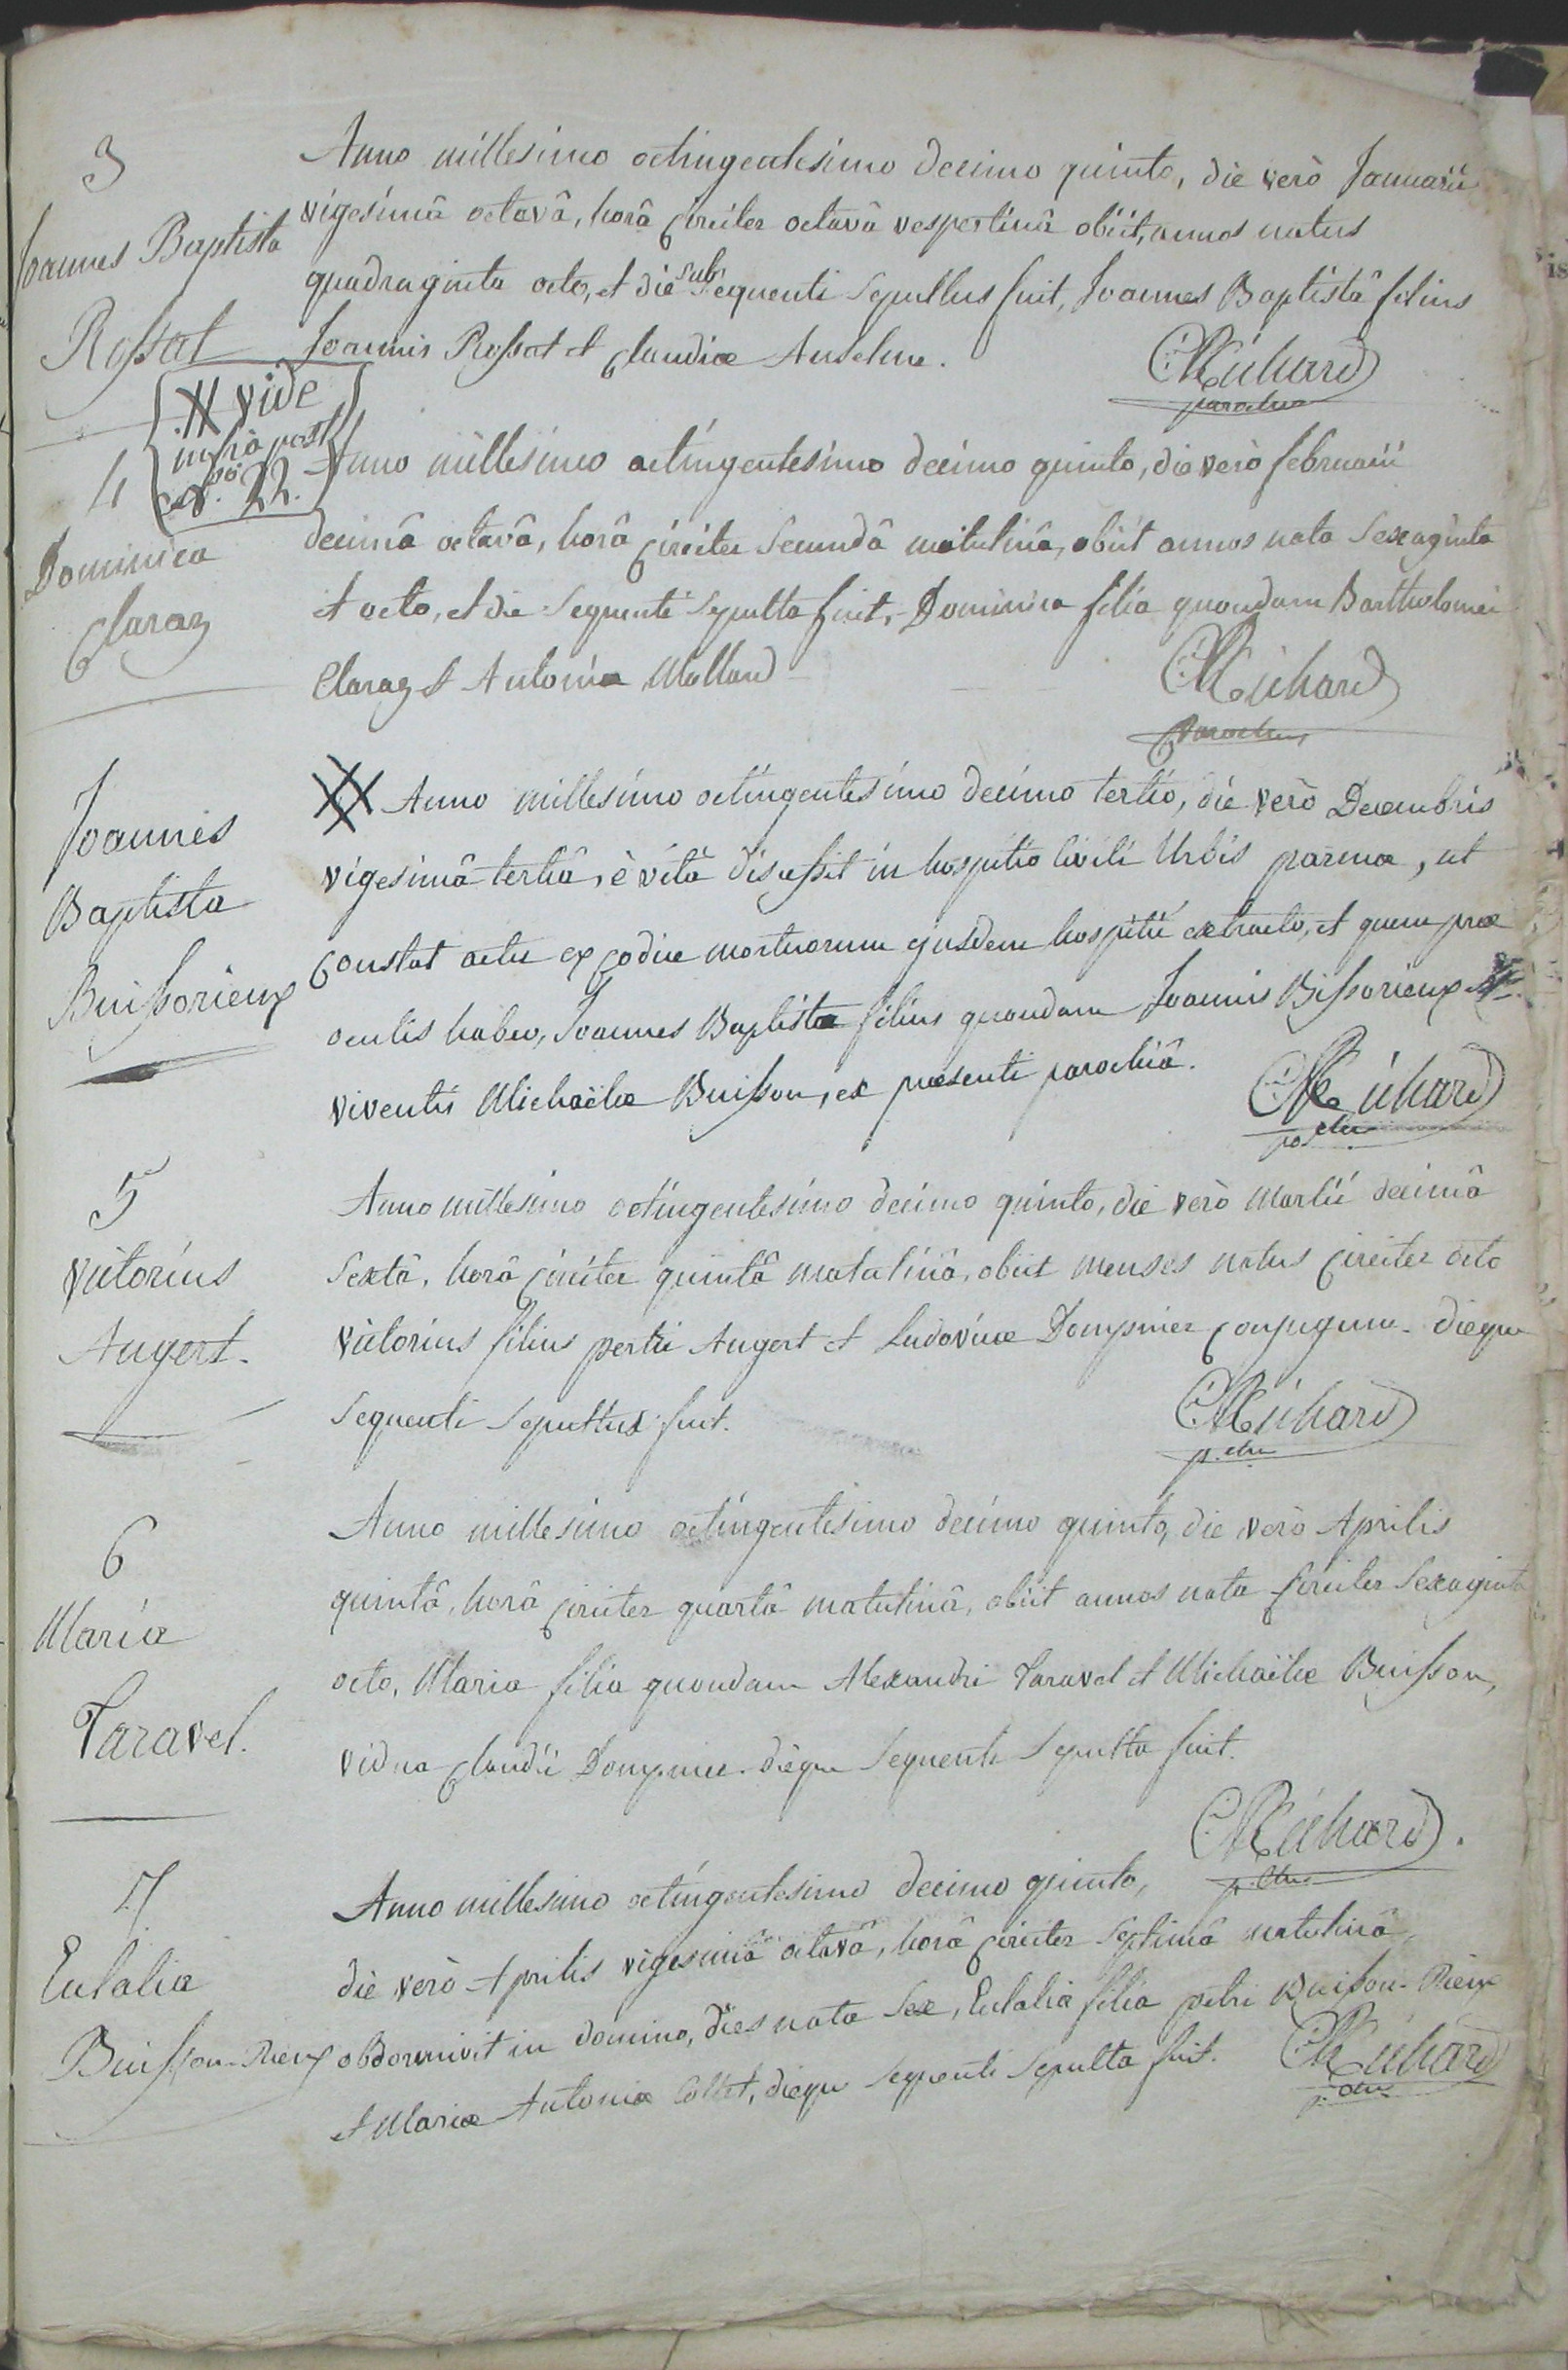 3
Joannes Baptista
Rossat
Anno millesimo octingentesimo decimo quinto, die verò Januarii
vigesimâ octavâ, horâ circiter octavâ vespertinâ obiit, annos natus
quadraginta octo, et die subsequenti sepultus fuit, Joannes Baptistâ filius
Joannis Rossat et Claudiæ Anselme.
Richard
parochus
# vide
infrà post
No. 22.
4
Dominica
Claraz
Anno millesimo octingentesimo decimo quinto, die verò februarii
decimâ octavâ, horâ circiter secundâ matutinâ, obiit annos nata sexaginta
et octo, et die sequenti sepulta fuit, Dominica filia quondam Bartholomei
Claraz et Antonia Molland
Richard
parochus
Joannes
Baptista
Buissorieux
# Anno millesimo octingentesimo decimo tertio, die verò Decembris
vigesimâ tertiâ, è vitâ discessit in hospitio Civili Urbis parmæ, ut
constat actu ex codice mortuorum ejusdem hospitii extracto, et quem præ
oculis habeo, Joannes Baptista filius quondam Joannis Bissorieux et
viventis Michaëlæ Buisson, ex præsenti parochiâ.
Richard
pochus
5
Victorius
Augert.
Anno millesimo octingentesimo decimo quinto, die verò Martii decimâ
sextâ, horâ circiter quintâ matutinâ, obiit menses natus circiter octo
Victorius filius pertri Augert et Ludovicæ Dompnier conjugum. dieque
sequenti sepultus fuit.
Richard
p.chus
6
Maria
Taravel.
Anno millesimo octingentesimo decimo quinto, die verò Aprilis
quintâ, horâ circiter quartâ matutinâ, obiit annos nata circiter sexaginta
octo, Maria filia quondam Alexandri Taravel et Michaëlæ Buisson,
vidua Claudii Dompnier. dieque sequenti sepulta fuit.
Richard.
p.chus
7
Eulalia
Buisson-Rieux
Anno millesimo octingentesimo decimo quinto,
die verò Aprilis vigesimâ octavâ, horâ circiter septimâ matutinâ,
obdormivit in domino, dies nata sex, Eulalia filia petri Buisson-Rieux
et Mariæ Antoniæ Collet, dieque sequenti sepulta fuit.
Richard
p.chus